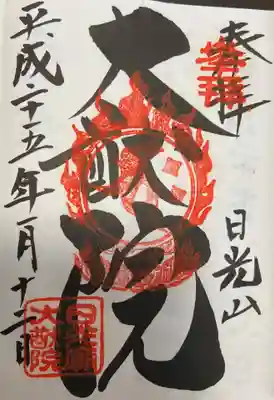 奉拝
日光山
大猷院
平成二十五年一月十二日
日光山
大猷院